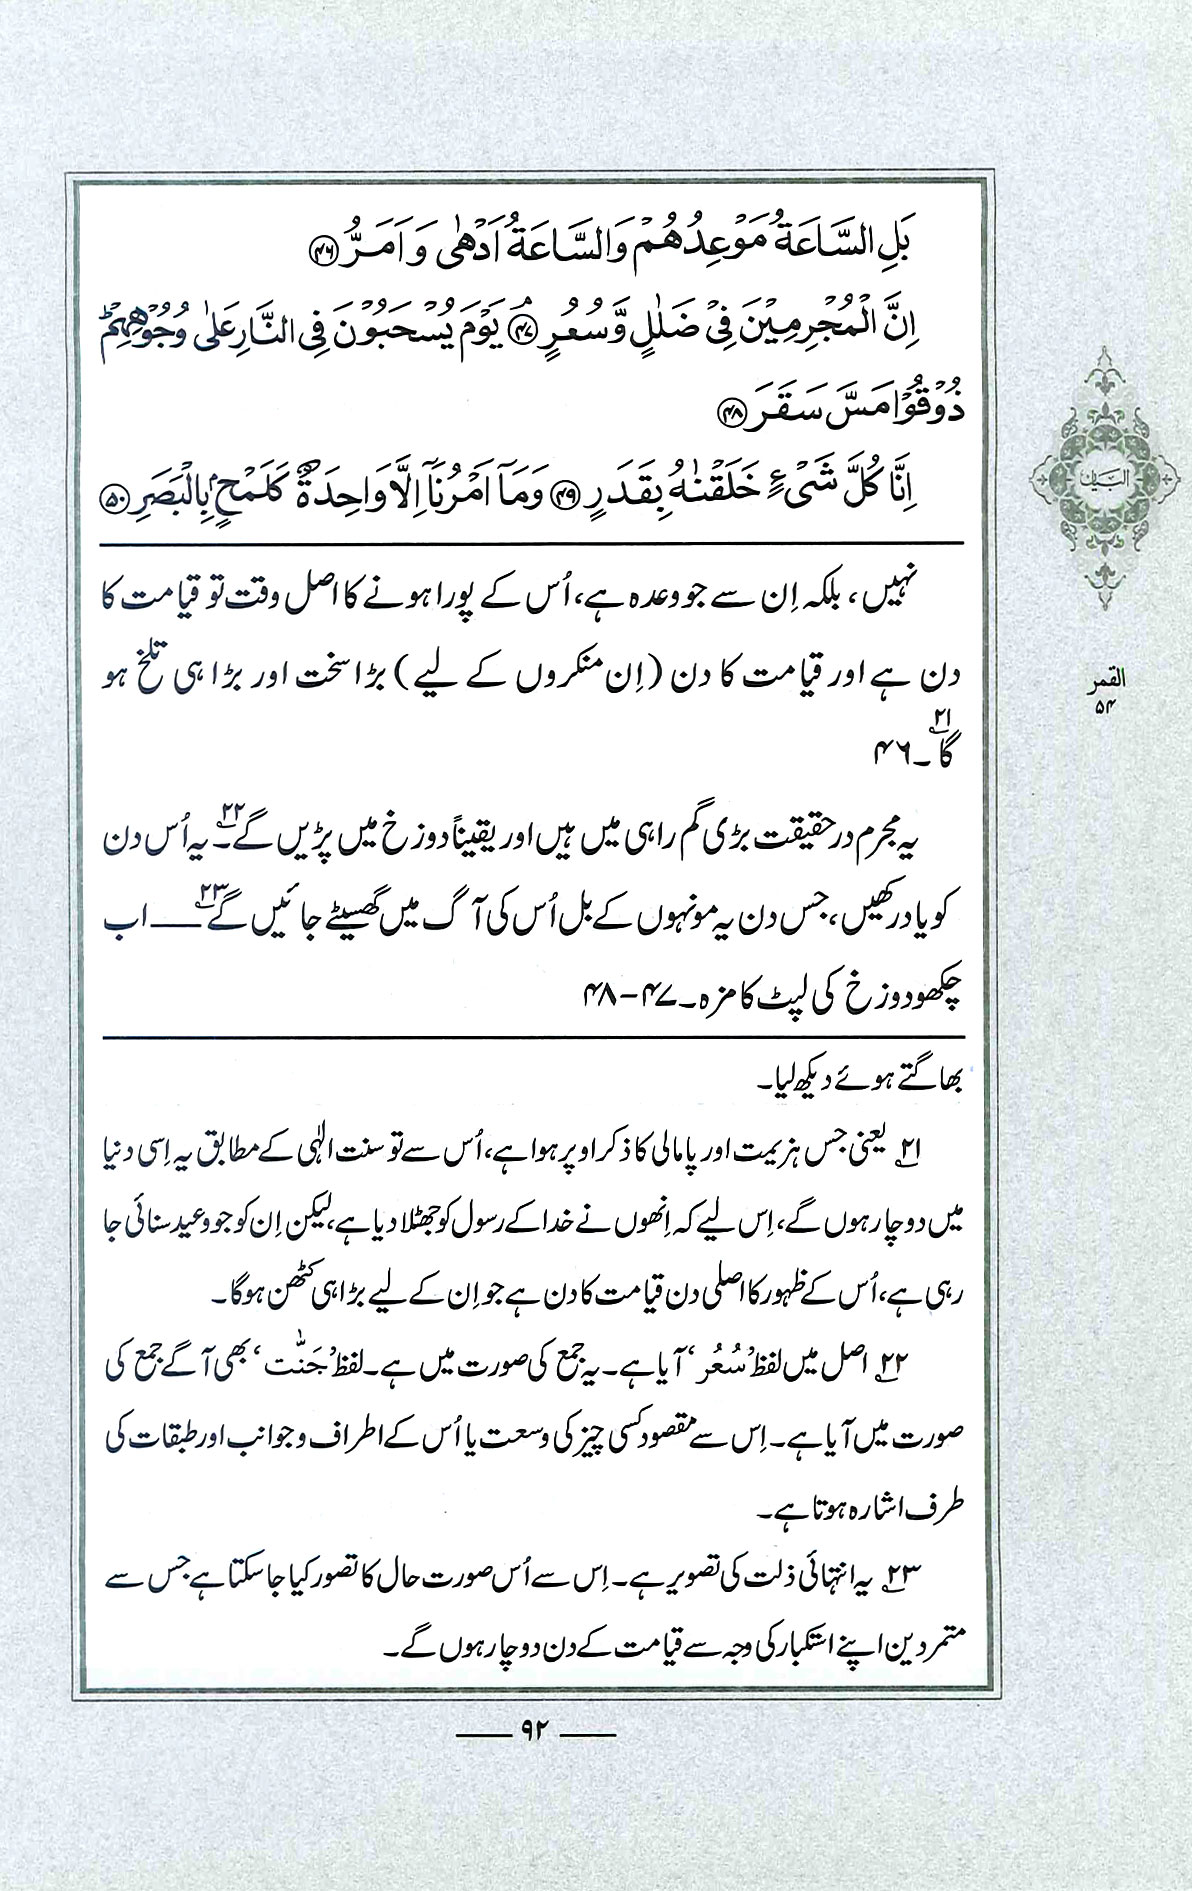 بَلِ السَّاعَةُ مَوْعِدُهُمْ وَالسَّاعَةُ اَدْهٰى وَ اَمَرُّ ﴿۴۶﴾
اِنَّ الْمُجْرِمِيْنَ فِيْ ضَلٰلٍ وَّ سُعُرٍ ﴿۴۷﴾ۘ يَوْمَ يُسْحَبُوْنَ فِي النَّارِ عَلٰى وُجُوْهِهِمْؕ
ذُوْقُوْا مَسَّ سَقَرَ ﴿۴۸﴾
اِنَّا كُلَّ شَيْءٍ خَلَقْنٰهُ بِقَدَرٍ ﴿۴۹﴾ وَمَآ اَمْرُنَآ اِلَّا وَاحِدَةٌ كَلَمْحٍۭ بِالْبَصَرِ ﴿۵۰﴾
نہیں، بلکہ اِن سے جو وعدہ ہے، اُس کے پورا ہونے کا اصل وقت تو قیامت کا
دن ہے اور قیامت کا دن (اِن منکروں کے لیے) بڑا سخت اور بڑا ہی تلخ ہو
گا۔۲۱ ۴۶
یہ مجرم درحقیقت بڑی گم راہی میں ہیں اور یقیناً دوزخ میں پڑیں گے۔۲۲ یہ اُس دن
کو یاد رکھیں، جس دن یہ مونہوں کے بل اُس کی آگ میں گھسیٹے جائیں گے۲۳ ــــ اب
چکھو دوزخ کی لپٹ کا مزہ۔ ۴۷-۴۸
بھاگتے ہوئے دیکھ لیا۔
۲۱ یعنی جس ہزیمت اور پامالی کا ذکر اوپر ہوا ہے، اُس سے تو سنت الٰہی کے مطابق یہ اِسی دنیا
میں دوچار ہوں گے، اِس لیے کہ اِنھوں نے خدا کے رسول کو جھٹلا دیا ہے، لیکن اِن کو جو وعید سنائی جا
رہی ہے، اُس کے ظہور کا اصلی دن قیامت کا دن ہے جو اِن کے لیے بڑا ہی کٹھن ہوگا۔
۲۲ اصل میں لفظ ’سُعُر‘ آیا ہے۔ یہ جمع کی صورت میں ہے۔ لفظ ’جَنّٰت‘ بھی آگے جمع کی
صورت میں آیا ہے۔ اِس سے مقصود کسی چیز کی وسعت یا اُس کے اطراف و جوانب اور طبقات کی
طرف اشارہ ہوتا ہے۔
۲۳ یہ انتہائی ذلت کی تصویر ہے۔ اِس سے اُس صورت حال کا تصور کیا جا سکتا ہے جس سے
متمردین اپنے استکبار کی وجہ سے قیامت کے دن دوچار ہوں گے۔
البیان
القمر
۵۴
— ۹۲ —